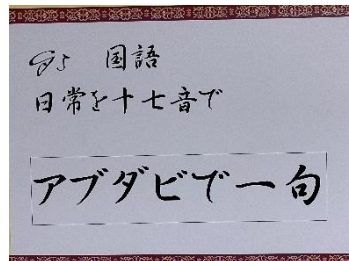 G5 国語
日常を十七音で
アブダビで一句